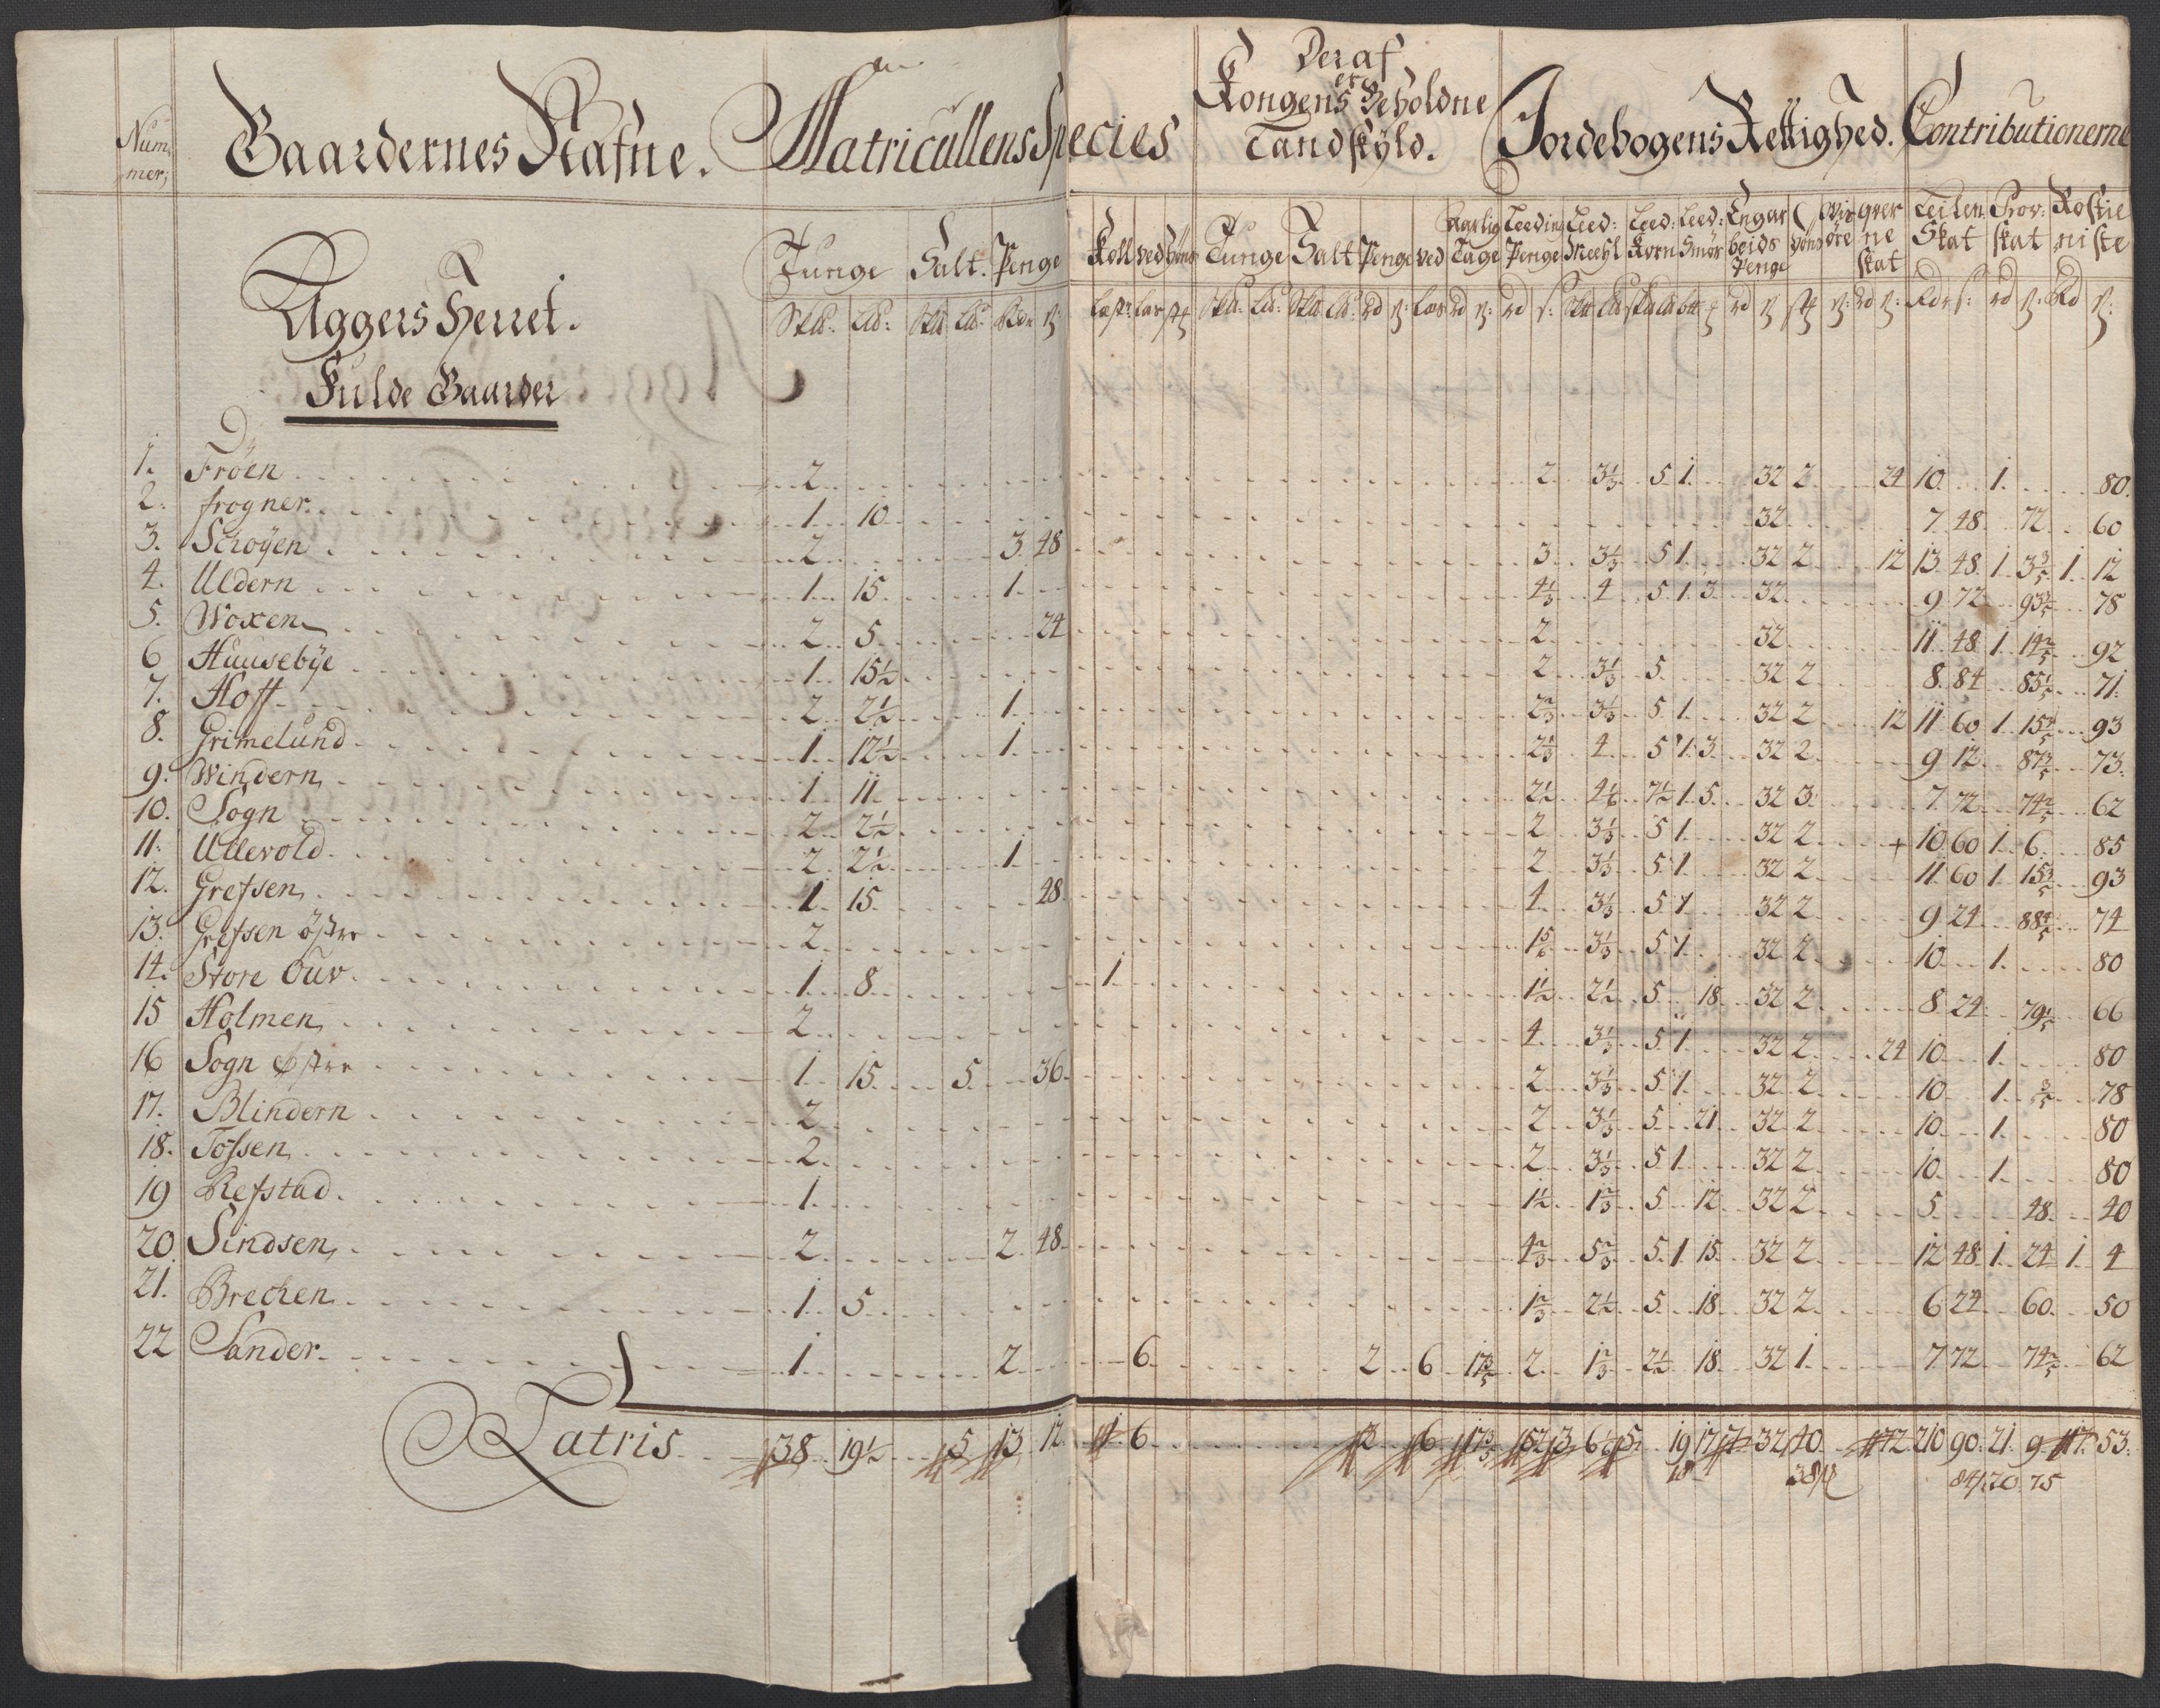 Num,, mer,, Gaardernes Nafne. Matricullens Species Deraf er Kongens Beholdne Landskyld. Jordebogens Rettighed. Contributionerne
Tunge Salt. Penge Koll ved Tunge Salt Penge ved Aarlig Tage Leeding Penge Leed: Meehl Leed: Korn Leed: Smör Engar beids Penge qver ne skat Leilen: Skat Prov: skat Rostie niste
Aggers Herret.
Fulde Gaarder
1. Fröen 2 2 3⅓ 5 1 32 2 24 10 1 80
2. frogner 1 10 32 7 48 72 60
3. Scröyen 2 3 48 3 3⅓ 5 1 32 2 12 13 48 1 3⅗ 1 12
4. Uldern 1 15 1 4⅓ 4 5 1 3 32 9 72 93⅗ 78
5. Woxen 2 5 24 2 32 11 48 1 14⅖ 92
6 Huusebÿe 1 15½ 2 3⅓ 5 32 2 8 84 85⅕ 71
7. Hoff 2 2½ 1 2⅔ 3⅓ 5 1 32 2 12 11 60 1 15⅗ 93
8. Grimelund 1 12½ 1 2⅓ 4 5 1 3 32 2 9 12 87⅗ 73
9. Windern 1 11 2½ 4⅙ 7½ 1 5 32 3 7 72 74⅖ 62
10. Sogn 2 2½ 2 3⅓ 5 1 32 2 + 10 60 1 6 85
11. Ullevold 2 2½ 1 2 3⅓ 5 1 32 2 11 60 1 15⅗ 93
12. Grefsen 1 15 48 4 3⅓ 5 1 32 2 9 24 88⅘ 74
13. Grefsen östre 2 1⅚ 3⅓ 5 1 32 2 10 1 80
14. Store Ouv 1 8 1 1½ 2½ 5 18 32 2 8 24 79⅕ 66
15 Holmen 2 4 3⅓ 5 1 32 2 24 10 1 80
16 Sogn Østre 1 15 5 36 2 3⅓ 5 1 32 2 10 1 ⅗ 78
17. Blindern 2 2 3⅓ 5 21 32 2 10 1 80
18. Tossen 2 2 3⅓ 5 1 32 2 10 1 80
19 Refstad 1 1½ 1⅔ 5 12 32 2 5 48 40
20 Sindsen 2 2 48 4⅔ 5⅔ 5 1 15 32 2 12 48 1 24 1 4
21. Brechen 1 5 1⅔ 2½ 5 18 32 2 6 24 60 50
22 Sander 1 2 6 2 6 17⅗ 2 1⅔ 2½ 18 32 1 7 72 74⅖ 62
Latris 38 19½ 5 13 12 1 6 2 6 17⅗ 19 17 32 40 72 210 90 21 9 17 53
18 84 20 75